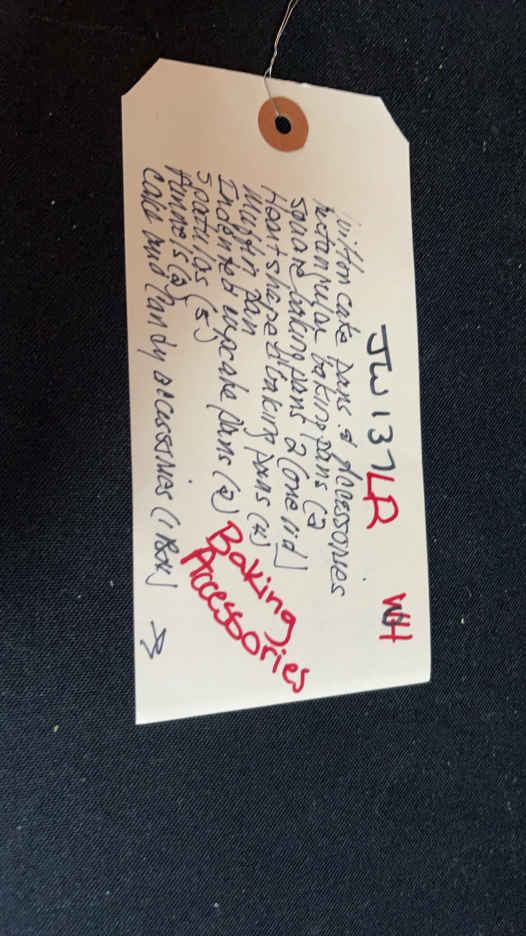 JW137LR WH
Wilton cake pans & Accessories
rectangular baking pans (2
square baking pans 2 (one lid)
Heart shape baking pans (4)
Muffin pan
Indented cake pans (2)
Spatulas (5)
funnels (2)
cake and candy accessories (1 Box)
Baking
Accessories